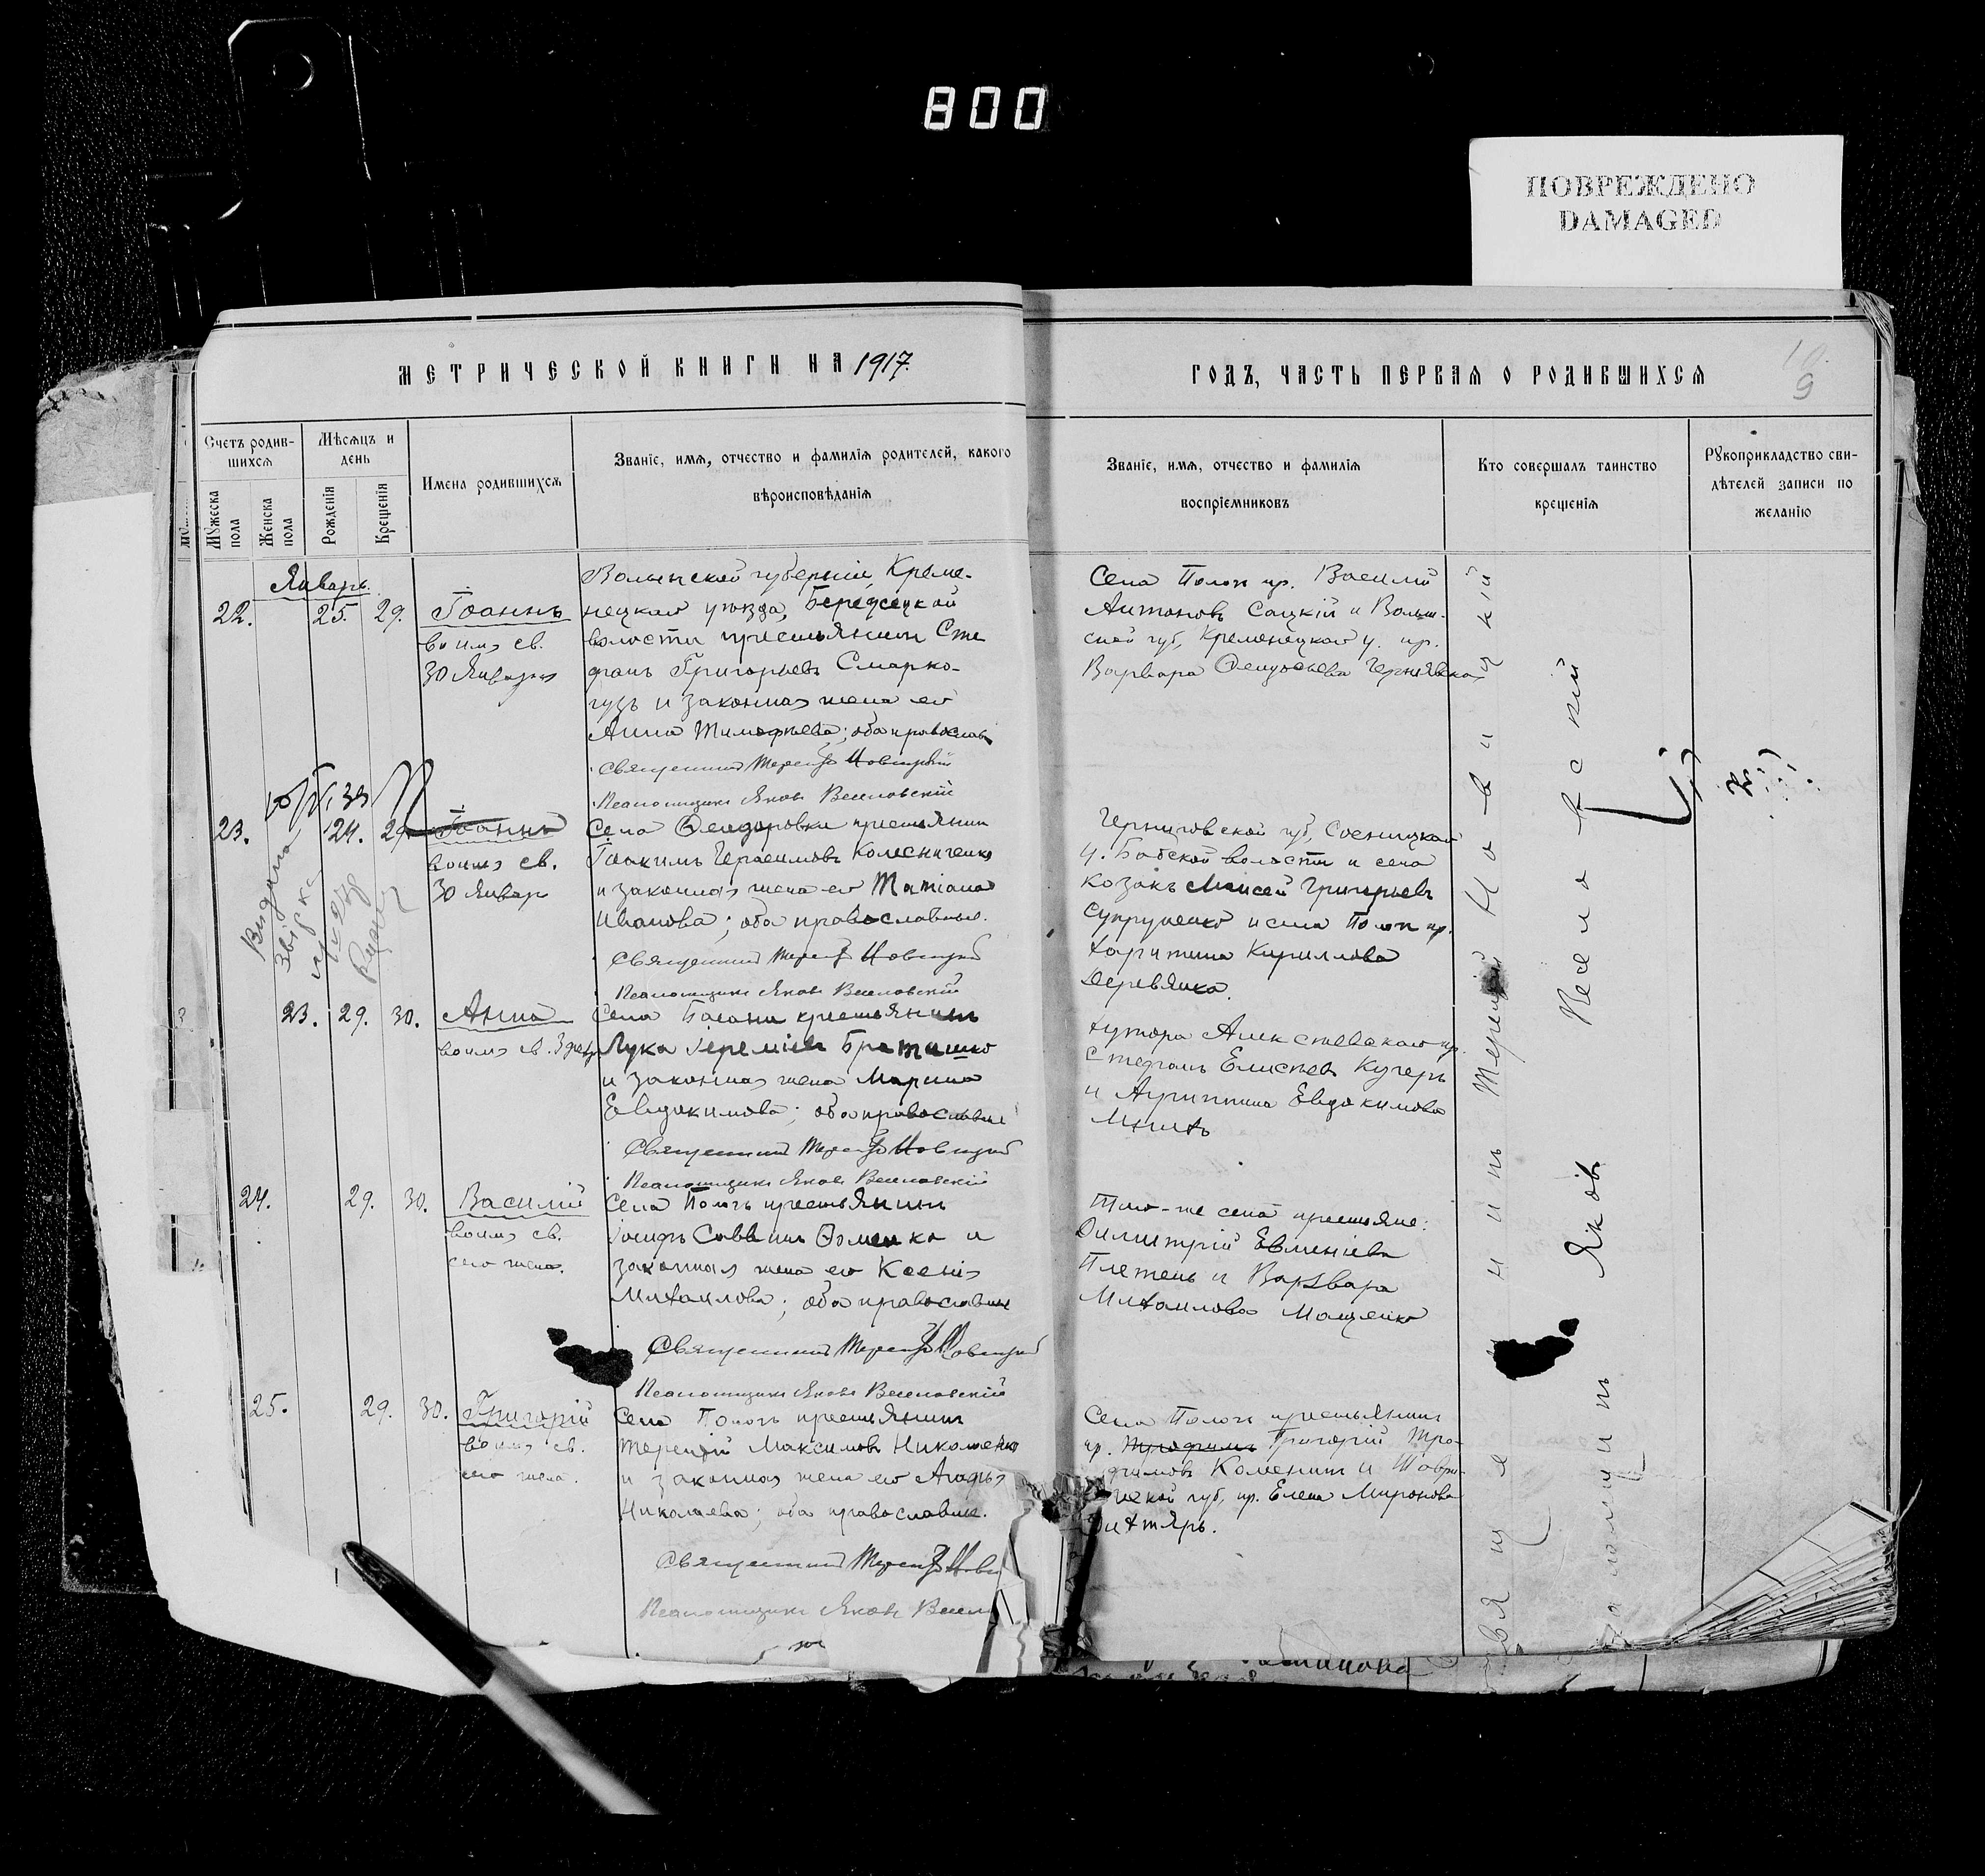 800
ПОВРЕЖДЕНО
DAMAGED
МЕТРИЧЕСКОЙ КНИГИ НА 1917.
ГОДЪ, ЧАСТЬ ПЕРВАЯ О РОДИВШИХСЯ
10.
9
Счетъ родив-
шихся
Мѣсяцъ и
день
Мужеска
пола
Женска
пола
Рожденія
Крещенія
Имена родившихся
Званіе, имя, отчество и фамилія родителей, какого
вѣроисповѣданія
Званіе, имя, отчество и фамилія
воспріемниковъ
Кто совершалъ таинство
крещенія
Рукоприкладство сви-
дѣтелей записи по
желанію
Январь.
22. 25. 29. Іоаннъ
во имя св.
30 Января
Волынской губерніи, Креме-
нецкаго уѣзда, Бережецкой
волости крестьянинъ Сте
фанъ Григорьевъ Смарко-
гузъ и законная жена его
Анна Тимофѣева; оба православн
Священникъ Терентій Новицкій
Псаломщикъ Яковъ Веселовскій
Села Пологъ кр. Василій
Антоновъ Сацкій и Волын-
ской губ, Кременецкаго у. кр.
Варвара
23. 24. 29 Іоаннъ
во имя св.
30 Январ
Села Ѳеодоровки крестьянинъ
Іоакимъ Герасимовъ Колесниченко
и законная жена его Татіана
Иванова; оба православные.
Священникъ Терентій Новицкій
Псаломщикъ Яковъ Веселовскій
Черниговской губ, Сосницкаго
у. Бабской волости и села
козакъ Моисей Григорьевъ
Супруненко и села Пологъ кр.
Харитина Кириллова
Деревянко.
Видана
звірка
23. 29. 30. Анна
во имя св.
Села Басани крестьянинъ
Лука Іереміевъ Браташко
и законная жена Марина
Евдокимова; оба православные
Священникъ Терентій Новицкій
Псаломщикъ Яковъ Веселовскій
Хутора Алексѣевскаго кр.
Стефанъ Елисѣевъ Кучеръ
и Агриппина Евдокимова
24. 29. 30. Василій
во имя св.
сего числа.
Села Пологъ крестьянинъ
Іосифъ Саввинъ Ѳоменко и
законная жена его Ксенія
Михаилова; оба православные
Священникъ Терентій Новицкій
Псаломщикъ Яковъ Веселовскій
Того-же села крестьяне:
Димитрій Евменіевъ
Плетень и Варвара
Михаилова Мащенко
25. 29. 30. Григорій
во имя св.
сего числа.
Села Пологъ крестьянинъ
Терентій Максимовъ Николаенко
и законная жена его Агафья
Николаева; оба православные.
Священникъ Терентій Нови
Псаломщикъ Яковъ Весел
Села Пологъ крестьянинъ
кр. Трофимъ Григорій Тро-
фимовъ Коменинъ и Таври-
ческой губ, кр. Елена Миронова
Дихтярь.
Священникъ Терентій Новицкій
Псаломщикъ Яковъ Веселовскій